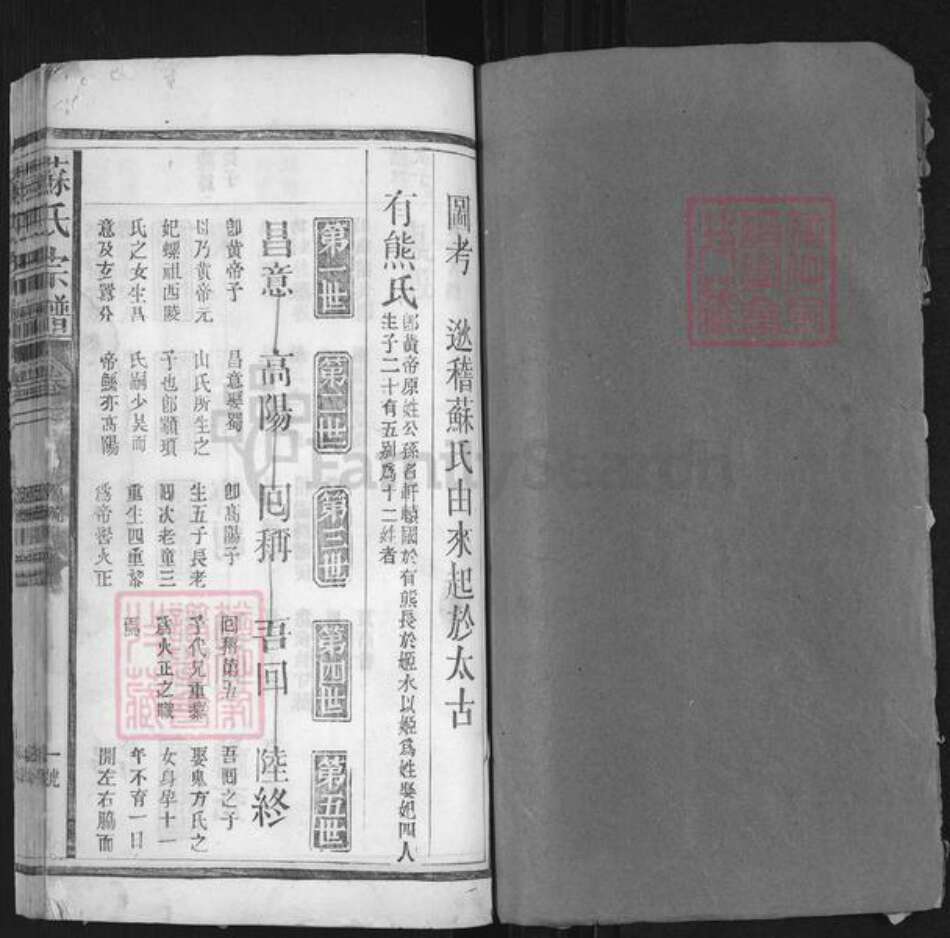 圖考 逖稽蘇氏由來起於太古
有熊氏
卽黃帝原姓公孫名軒轅國於有熊長於姬水以姬爲姓娶妃四人
生子二十有五別爲十二姓者
第一世
昌意
卽黃帝子
以乃黃帝元
妃螺祖西陵
氏之女生昌
意及玄囂分
第二世
高陽
昌意娶蜀
山氏所生之
子也卽顓頊
氏嗣少昊而
帝號亦高陽
第三世
回稱
卽高陽子
生五子長老
次老童三
重生四重黎
爲帝嚳火正
第四世
吾回
回稱第五
子代兄重黎
爲火正之職
焉
第五世
陸終
吾回之子
娶鬼方氏之
女身孕十一
年不育一日
開左右脇而
蘇氏宗譜
一號
FamilySearch